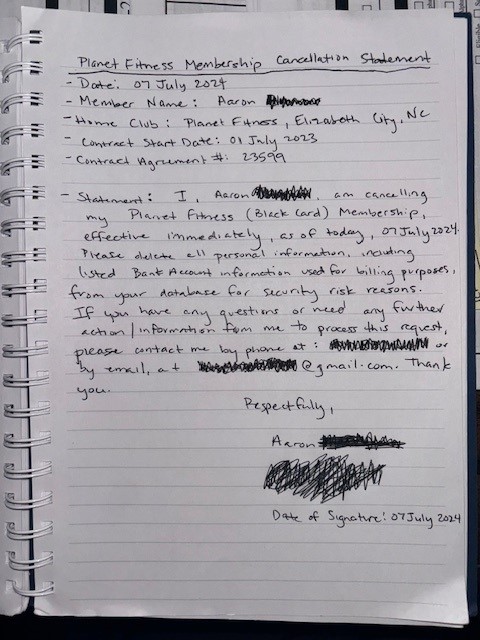 Planet Fitness Membership Cancellation Statement
- Date: 07 July 2024
- Member Name: Aaron
- Home Club: Planet Fitness, Elizabeth City, NC
- Contract Start Date: 01 July 2023
- Contract Agreement #: 23599
- Statement: I, Aaron , am cancelling
my Planet Fitness (Black Card) Membership,
effective immediately, as of today, 07 July 2024.
Please delete all personal information, including
listed Bank Account information used for billing purposes,
from your database for security risk reasons.
If you have any questions or need any further
action/information from me to process this request,
please contact me by phone at: or
by email, at @gmail.com. Thank
you.
Respectfully,
Aaron
Date of Signature: 07 July 2024